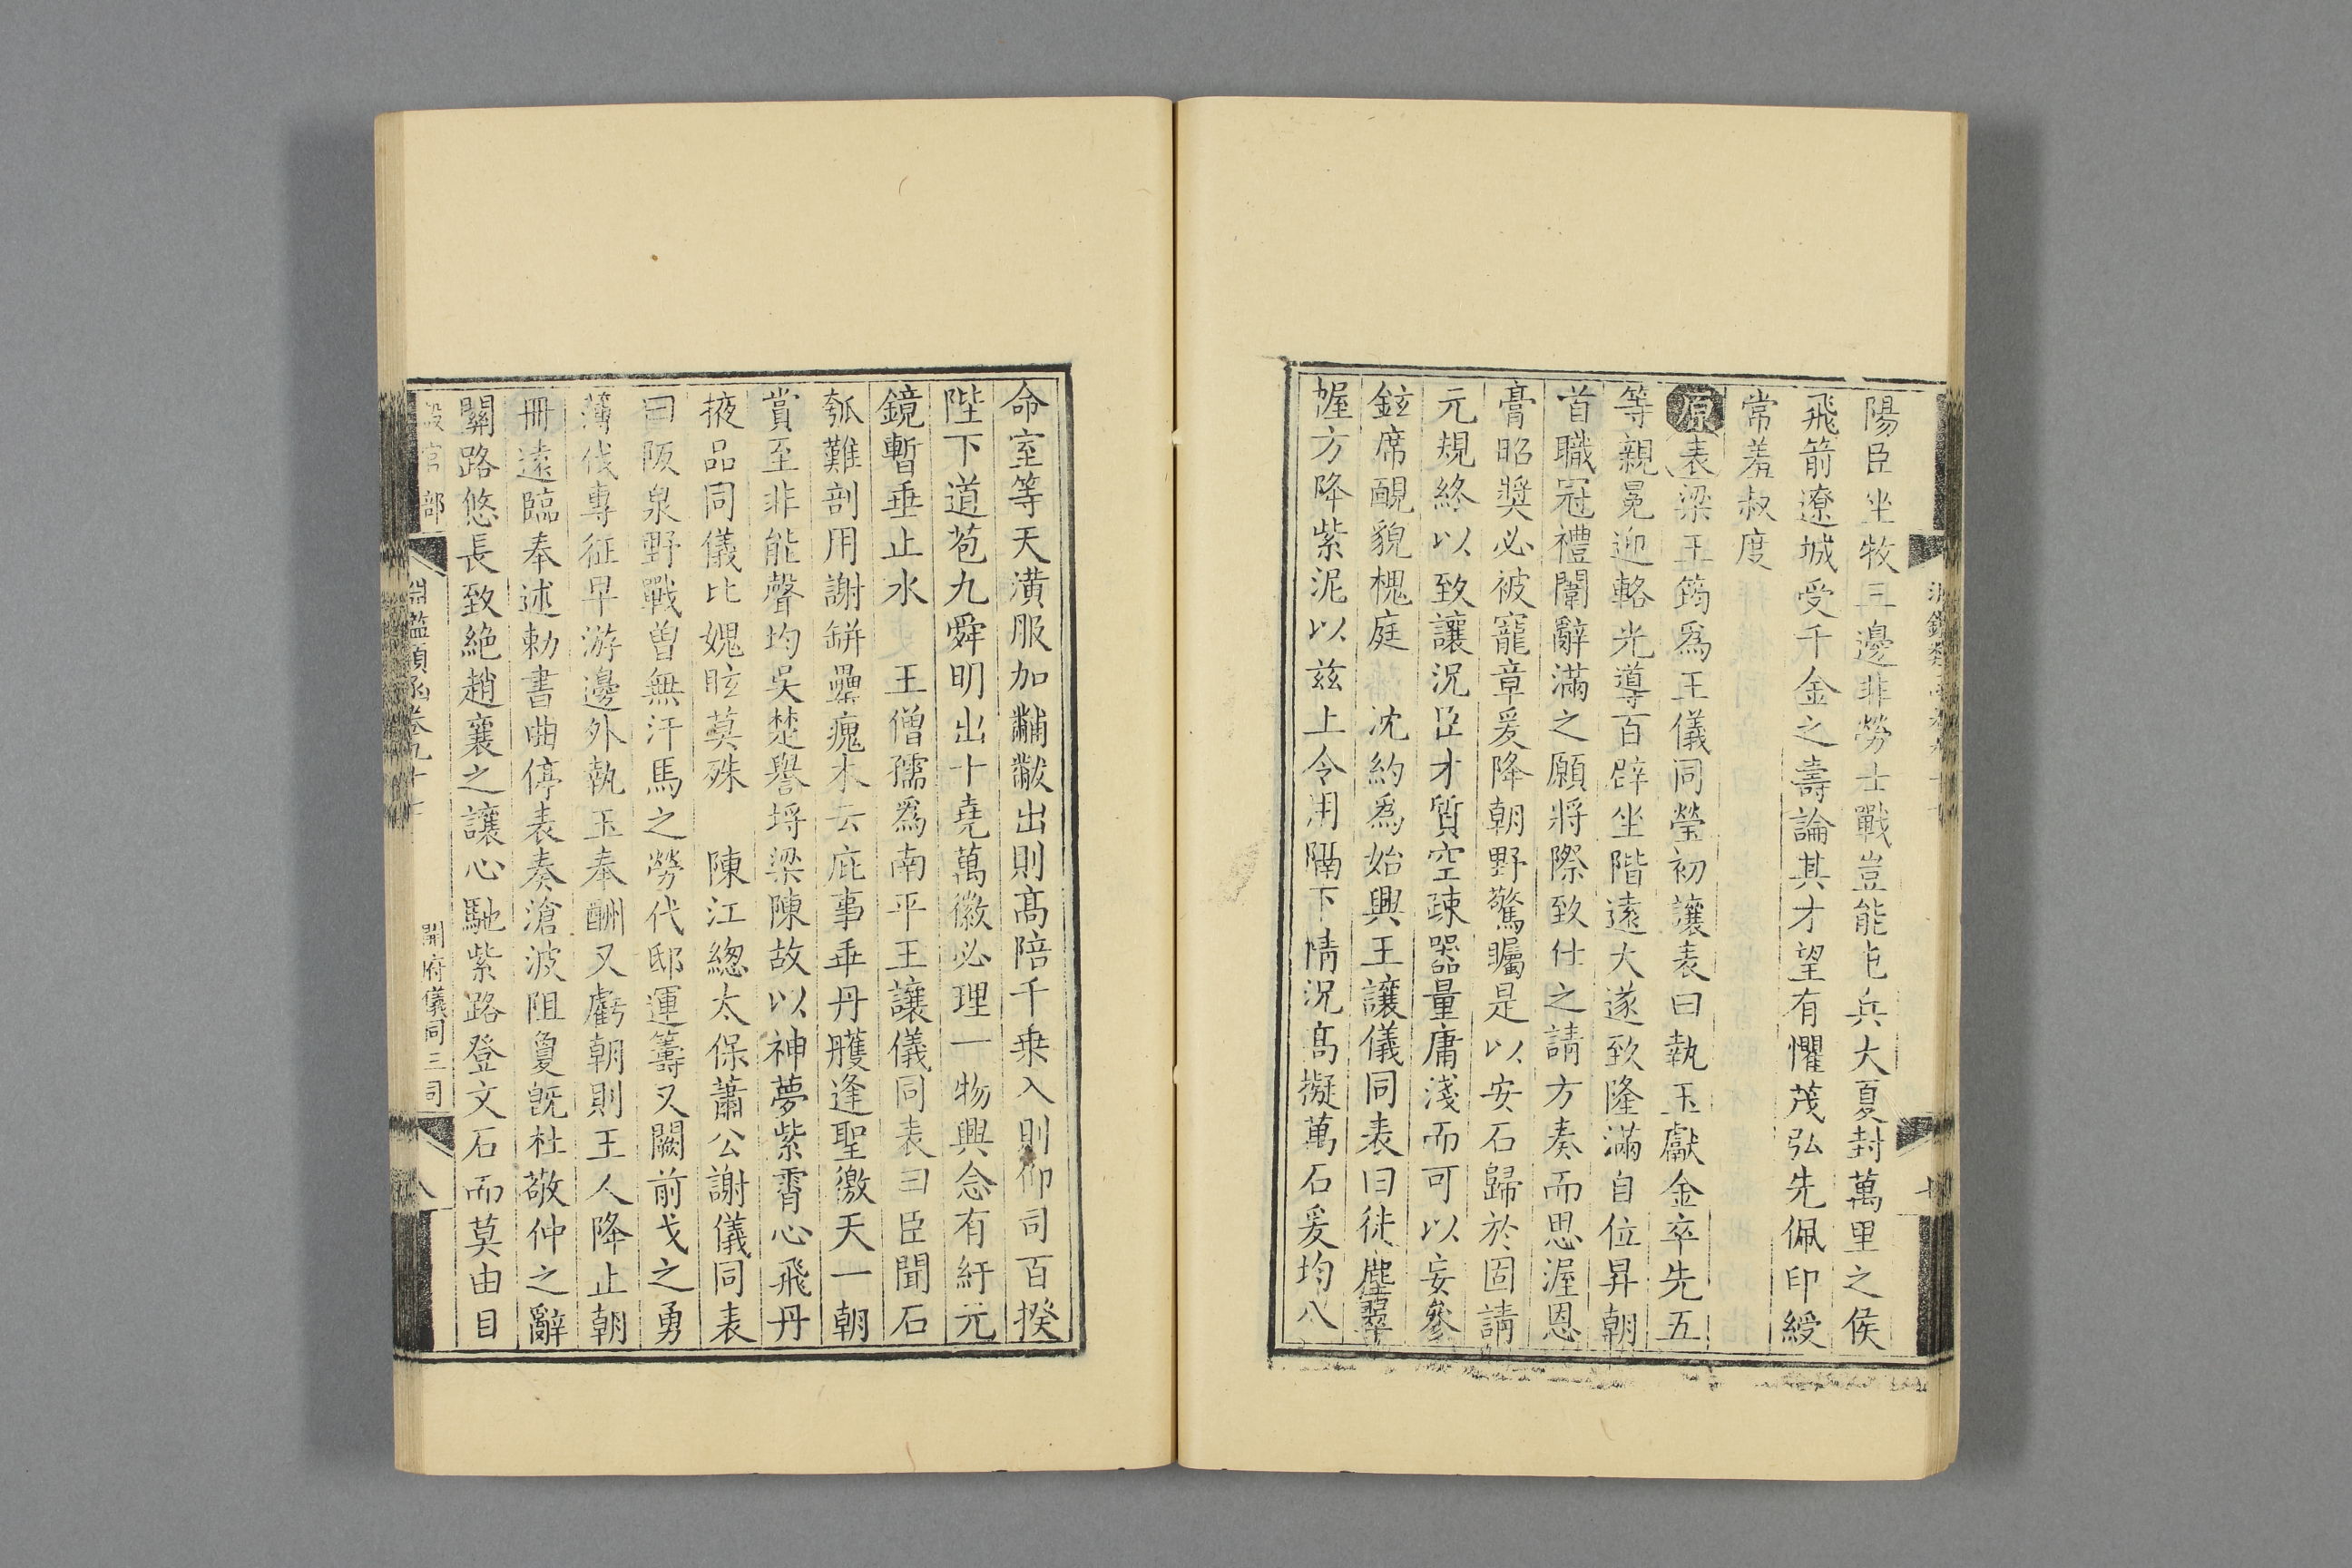 陽臣坐牧三邊非勞士戰豈能屯兵大夏封萬里之侯
飛箭遼城受千金之壽論其才望有懼茂弘先佩印綬
常羞叔度
原表梁王筠爲王儀同瑩初讓表曰執玉獻金卒先五
等親冕迎輅光導百辟坐階遠大遂致隆滿自位昇朝
首職冠禮闈辭滿之願將際致仕之請方奏而思渥恩
膏昭奬必被寵章爰降朝野驚矚是以安石歸於固請
元規終以致讓況臣才質空疎器量庸淺而可以妄參
鉉席靦貌槐庭　沈約爲始興王讓儀同表曰徙塵翠
幄方降紫泥以兹上令用隔下情況高擬萬石爰均八
命室等天潢服加黼黻出則高陪千乗入則仰司百揆
陛下道苞九舜明出十堯萬徽必理一物興念有紆元
鏡暫垂止水　王僧孺爲南平王讓儀同表曰臣聞石
瓠難剖用謝缾罍瘣木云庇事乖丹雘逢聖徼天一朝
賞至非能聲均吳楚譽埒梁陳故以神夢紫霄心飛丹
掖品同儀比媿眩莫殊　陳江總太保蕭公謝儀同表
曰阪泉野戰曽無汗馬之勞代邸運籌又闕前戈之勇
薄伐專征早游邊外執玉奉酬又虧朝則王人降止朝
冊遠臨奉述勅書曲停表奏滄波阻敻旣杜敬仲之辭
關路悠長致絶趙襄之讓心馳紫路登文石而莫由目
設官部
淵鑑類函卷九十七
開府儀同三司
八